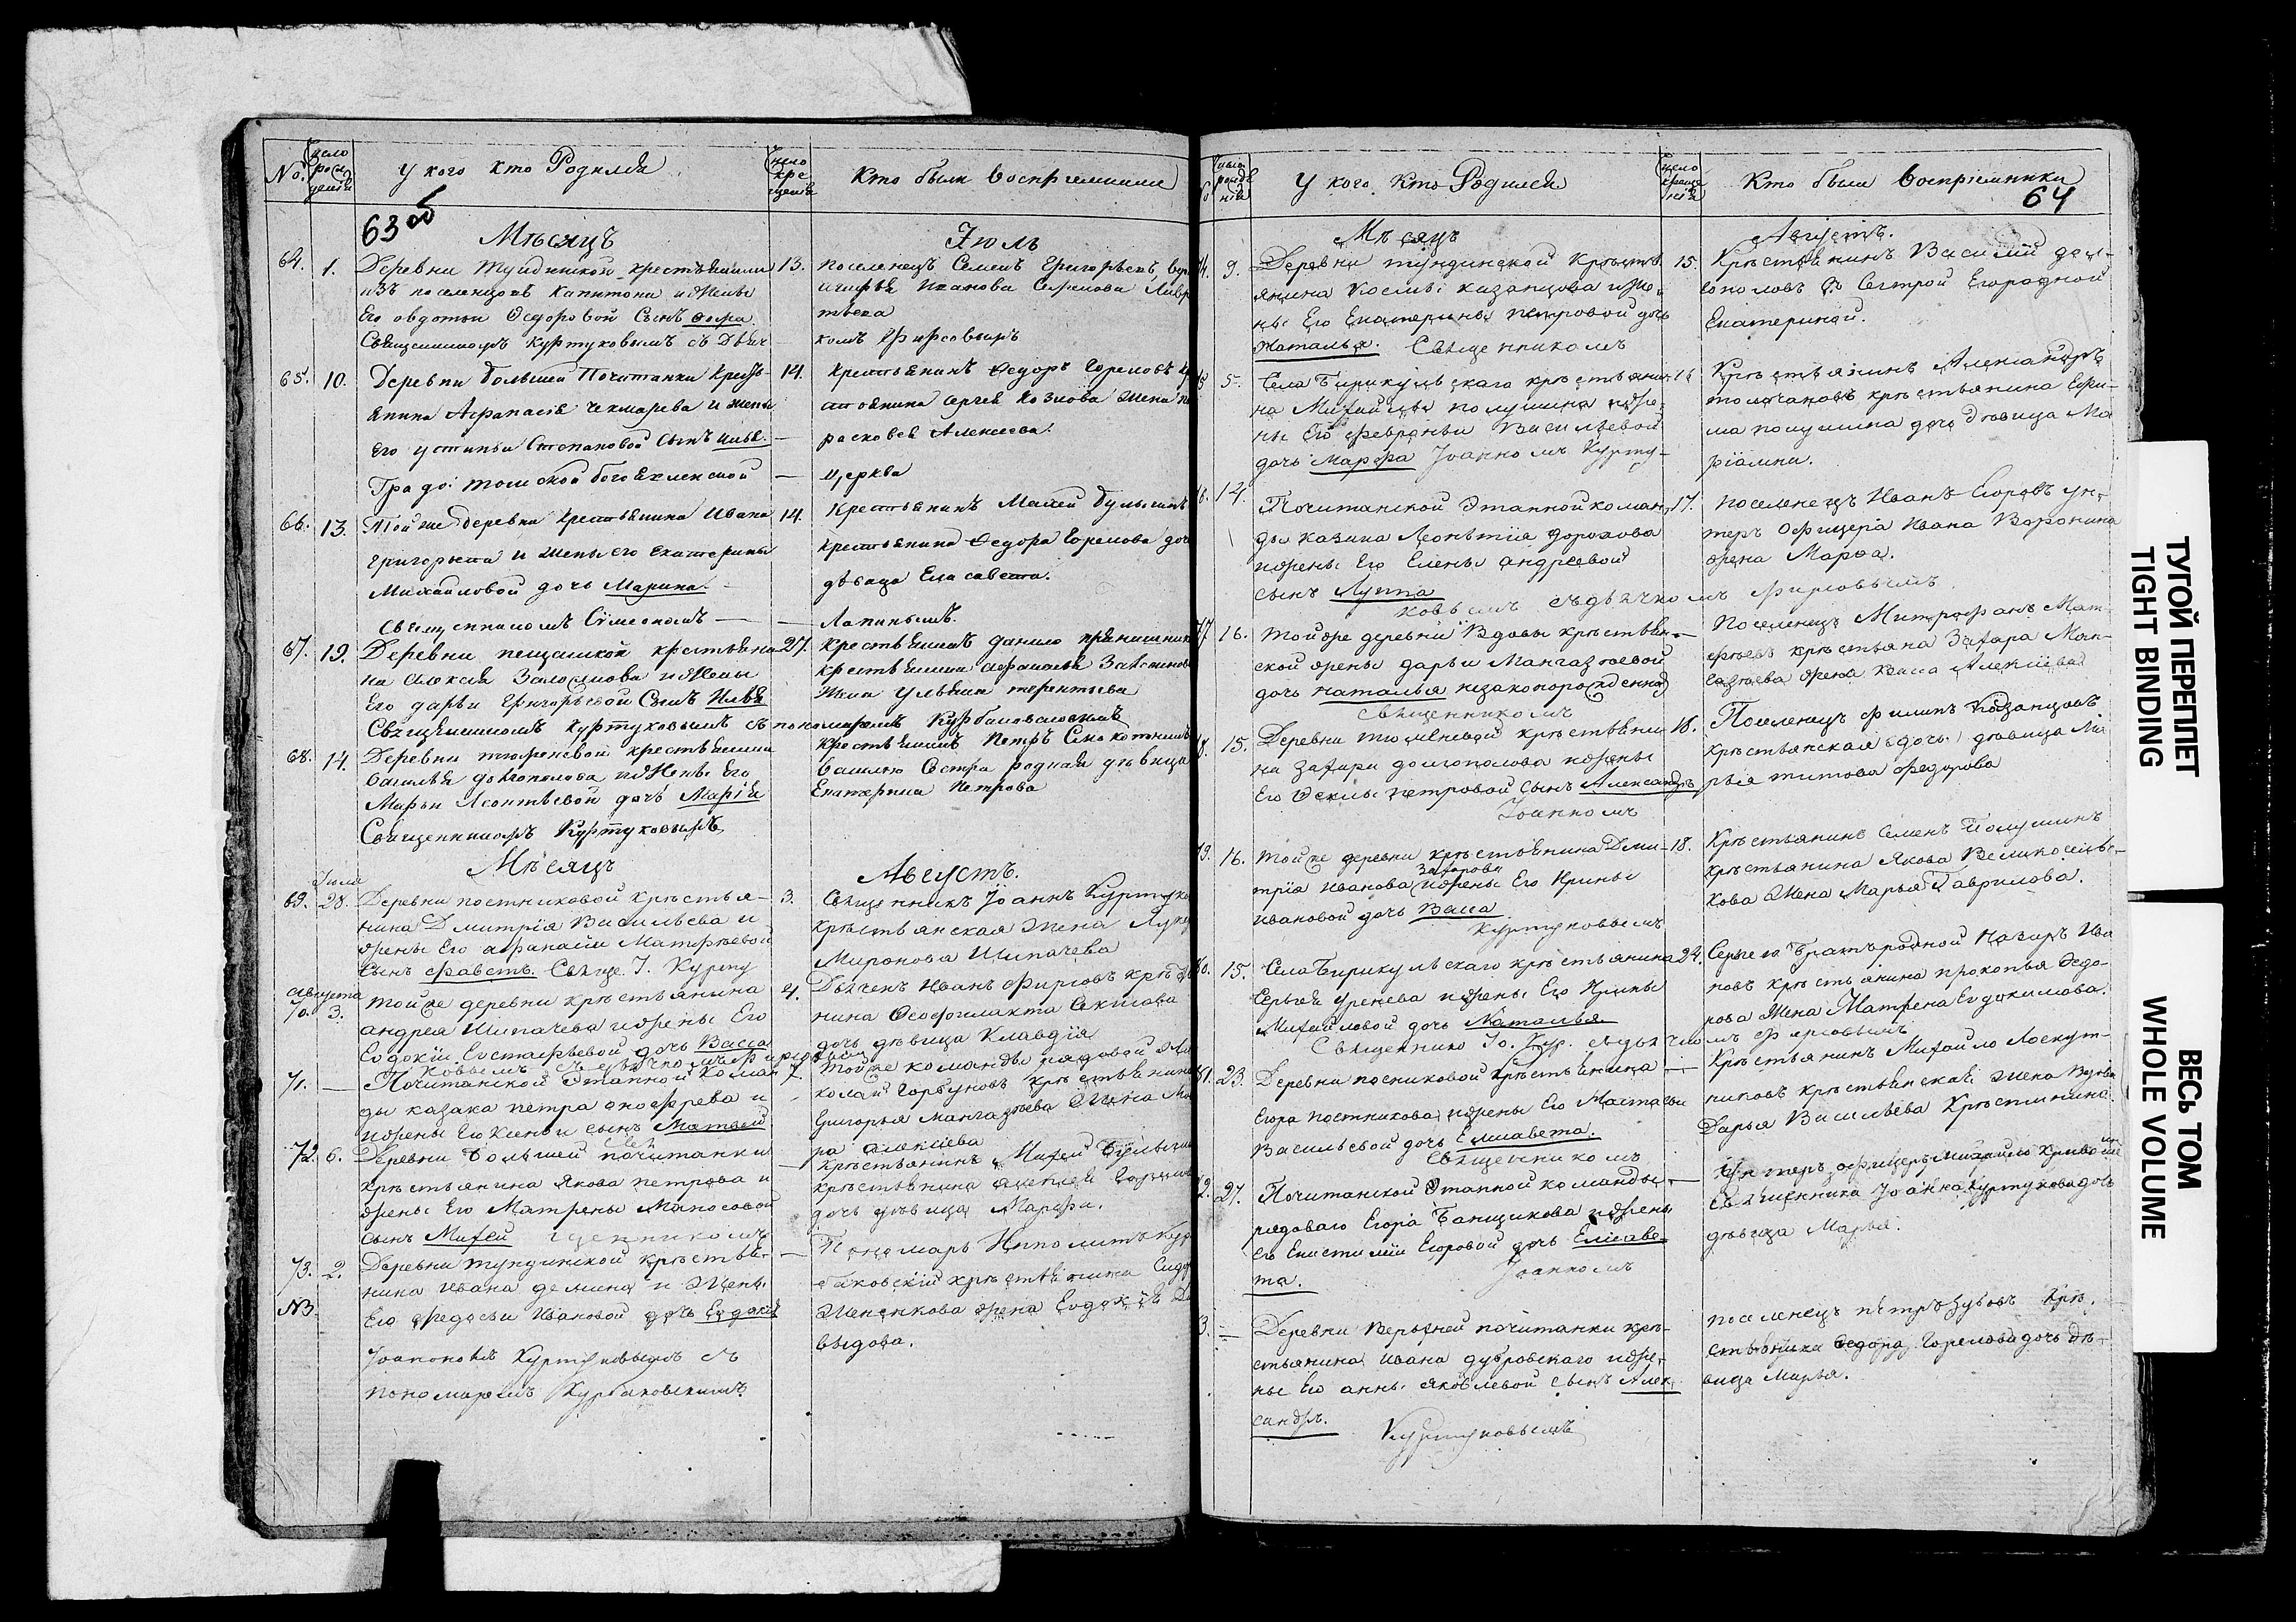 No.
Число рождения
У кого кто Родился
Число крещения
Кто были воспрiемники
63 об
Мѣсяцъ
Іюль
64. 1. Деревни Тундинской крестьянина 13.
изъ поселенцовъ Капитона и жены
Его Авдотьи Ѳедоровой Сынъ
Священникомъ Куртуковымъ съ Дьяч
поселенецъ Семенъ Григорьевъ,
Иванова
комъ Фирсовымъ
65. 10. Деревни большей Почитанки Кресть- 14.
янина Афанасія Чекмарева и жены
Его Устиньи Степановой Сынъ Илья. —
Градо Томской богоявленской —
Крестьянинъ Ѳедоръ Гореловъ кр
стьянина Сергея Козлова жена п
расковья Алексеева.
Церкви
66. 13. Той же деревни Крестьянина Ивана 14.
Григорьева и жены его Екатерины
Михайловой дочь Марина. —
Священникомъ Сѵмеономъ —
Крестьянинъ Мат­вей Булыгинъ
крестьянина Ѳедора Горелова доч
дѣвица Елисавета.
— Лапинымъ.
67. 19. Деревни крестьяни 27.
на Алексія и жены
Его Дарьи Григорьевой Сынъ Илья
Священникомъ Куртуковымъ съ пономаремъ Курбаковскимъ
крестьянинъ Данило прянишник
крестьянина Афанасья
жена Ульяна терентьева
68. 14. Деревни тюменевой крестьянина
Василья долгополова и жены Его
Марьи Леонтьевой дочь Марія
Священникомъ Куртуковымъ
крестьянинъ Петръ
Василью Сестра родная дѣвица
Екатерина Петрова
Мѣсяцъ
Августъ.
Іюля
69. 28. Деревни постниковой крѣстья- 3.
нина Дмитрія Васильева и
жены Его Афанасіи Матфѣевой
Сынъ Фавстъ. Свяще. І. Курту
Священникъ Іоаннъ Куртуко
крѣстьянская жена
Миронова Шипачева
Августа
70. 3. Той же деревни крѣстьянина 4.
Андрея Шипачева и жены Его
Евдокіи Евстафьевой дочь Васса
ковымъ съ дьячкомъ Фирсовымъ
Дьяченъ Иванъ Фирсовъ крѣстья
нина Ѳеофилакта Секисова
дочь дѣвица Клавдія
71. — Почитанской Этапной Коман 7.
ды казака петра онофрева и
жены Его Ксеньи сынъ Матвей
Той же команды рядовой Ни
колай Горбуновъ крѣстьянина
Григорья Мангазѣева жена Ма
ра Алексіева
Свя
72. 6. Деревни Большей почитанки —
крѣстьянина Якова петрова и
жены Его Матрены Маносовой
сынъ Михей щенникомъ
Крѣстьянинъ Михей Булыгин
крѣстьянина Алексея
дочь дѣвица Марфа.
73. 2. Деревни тундинской крѣстья- —
нина Ивана демина и жены
NB. Его Федосьи Ивановой дочь Евдокія
Іоанономъ Куртуковымъ съ
пономаремъ Курбаковскимъ
Пономарь Ипполитъ Кур
баковскій крѣстьянина Сидо
Шененкова жена Евдокія Да
выдова.
Число рожденія
У кого Кто Родился
Число крещенія
Кто были Воспріемники
64
Мѣсяцъ
Августъ.
74. 9. Деревни тундинской Крѣсть- 15.
янина Космы казанцова и же-
ны Его Екатерины Петровой дочь
Наталья. Священникомъ
Крѣстьянинъ Василій дол-
гополовъ Съ Сестрой Его родной
Екатериной.
75 5. Села Бирикульскаго крѣстьяни- 16
на Михаила полушина и же-
ны Его Февроньи Васильевой
дочь Марфа Іоанномъ Курту-
Крѣстьянинъ Александръ
толочановъ крѣстьянина Ефи-
ма полушина дочь дѣвица Ма
ріамна.
76. 14. Почитанской Этапной коман- 17.
ды казака Леонтія дорохова
и жены Его Елены Андреевой
сынъ Луппа
ковымъ съ дьячкомъ Фирсовымъ
поселенецъ Иванъ Егоровъ ун-
теръ офицера Ивана Воронина
жена Марфа.
77 16. Той же деревни Вдовы крѣстьян- —
ской жены Дарьи Мангазѣевой
дочь Наталья незаконорожденна
Священникомъ
Поселенецъ Митрофанъ Мат-
фѣевъ крѣстьяна Захара Ман-
газѣева жена Васса Алексіева
78. 15. Деревни тюменевой крѣстьяни 18.
на Захара долгополова и жены
Его Ѳеклы петровой Сынъ Александръ
Іоанномъ
Поселенецъ Филипъ Казанцовъ
крѣстьянская дочь дѣвица Ма
рья титова Федорова
79. 16. Той же деревни крѣстьянина Дми- 18.
трія Иванова Захарова и жены Его Ирины
Ивановой дочь Васса
Куртуковымъ
Крѣстьянинъ Семенъ Полушинъ
крѣстьянина Якова Великосель-
кова жена Марья Гаврилова.
80. 15. Села Бирикульскаго крѣстьянина 24.
Сергея Уренева и жены Его Ирины
Михайловой дочь Наталья
Священико Іо. Кур. съ дьячкомъ Фирсовымъ
Сергею Братъ родной Назаръ Ива
новъ крѣстьянина прокопья Ѳедо-
рова жена Матрена Евдокимова.
81. 23. Деревни посниковой Крѣстьянина —
Егора Постникова и жены Его Мастасьи
Васильевой дочь Елисавета.
Священникомъ
Крѣстьянинъ Михайло Лоскут-
никовъ крѣстьянская жена Вдова
Дарья Васильева Крѣстинина.
82. 27. Почитанской Этапной команды —
рядоваго Егора Банщикова и жены
Его Епистиміи Егоровой дочь Елисаве-
та. Іоанномъ
Унтеръ офицеръ Михайло
Священника Іоанна Куртукова дочь
дѣвица Марья.
83. — Деревни Верьхней почитанки крѣ-
стьянина Ивана дубровскаго и же-
ны Его Анны Яковлевой Сынъ Алек-
сандръ. Куртуковымъ
поселенецъ петръ Зубовъ Крѣ-
стьянина Ѳедора Горелова дочь дѣ-
вица Марья.
ТУГОЙ ПЕРЕПЛЕТ
TIGHT BINDING
ВЕСЬ ТОМ
WHOLE VOLUME